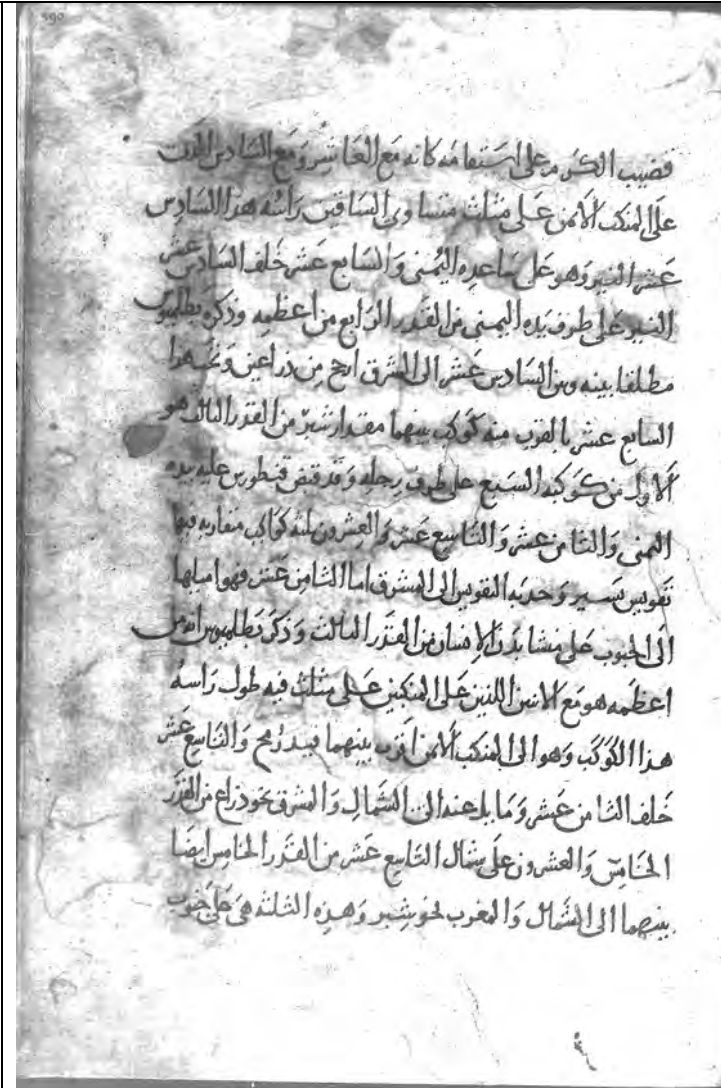 قضيب الكرم على استقامه كانه مع العاشر ومع السادس الذى
على المنكب الايمن على مثلث متساوى الساقين راسه هذا السادس
عشر النير وهو على ساعده اليمنى والسابع عشر خلف السادس عشر
النير على طرف يده اليمنى من القدر الرابع من اعظمه وذكره بطلميوس
مطلقا بينه وبين السادس عشر الى المشرق ارجح من ذراعين وتحت هذا
السابع عشر بالقرب منه كوكب بينهما مقدار شبر من القدر الثالث هو
الاول من كوكبه السبع على طرف رجله وقد قبض قنطورس عليه بيده
اليمنى والثامن عشر والتاسع عشر والعشرون ثلثه كواكب متقاربه فيها
تقويس يسير وحدبه التقويس الى المشرق اما الثامن عشر فهو اميلها
الى الجنوب على منشا بدن الانسان من القدر الثالث وذكر بطلميوس انه من
اعظمه هو مع الاثنين اللذين على المنكبين على مثلث فيه طول راسه
هذا الكوكب وهو الى المنكب الايمن اقرب بينهما قيد رمح والتاسع عشر
خلف الثامن عشر ومايل عنه الى الشمال والمشرق نحو ذراع من القدر
الخامس والعشرون على شمال التاسع عشر من القدر الخامس ايضا
بينهما الى الشمال والمغرب نحو شبر وهذه الثلثه هى على جنوب